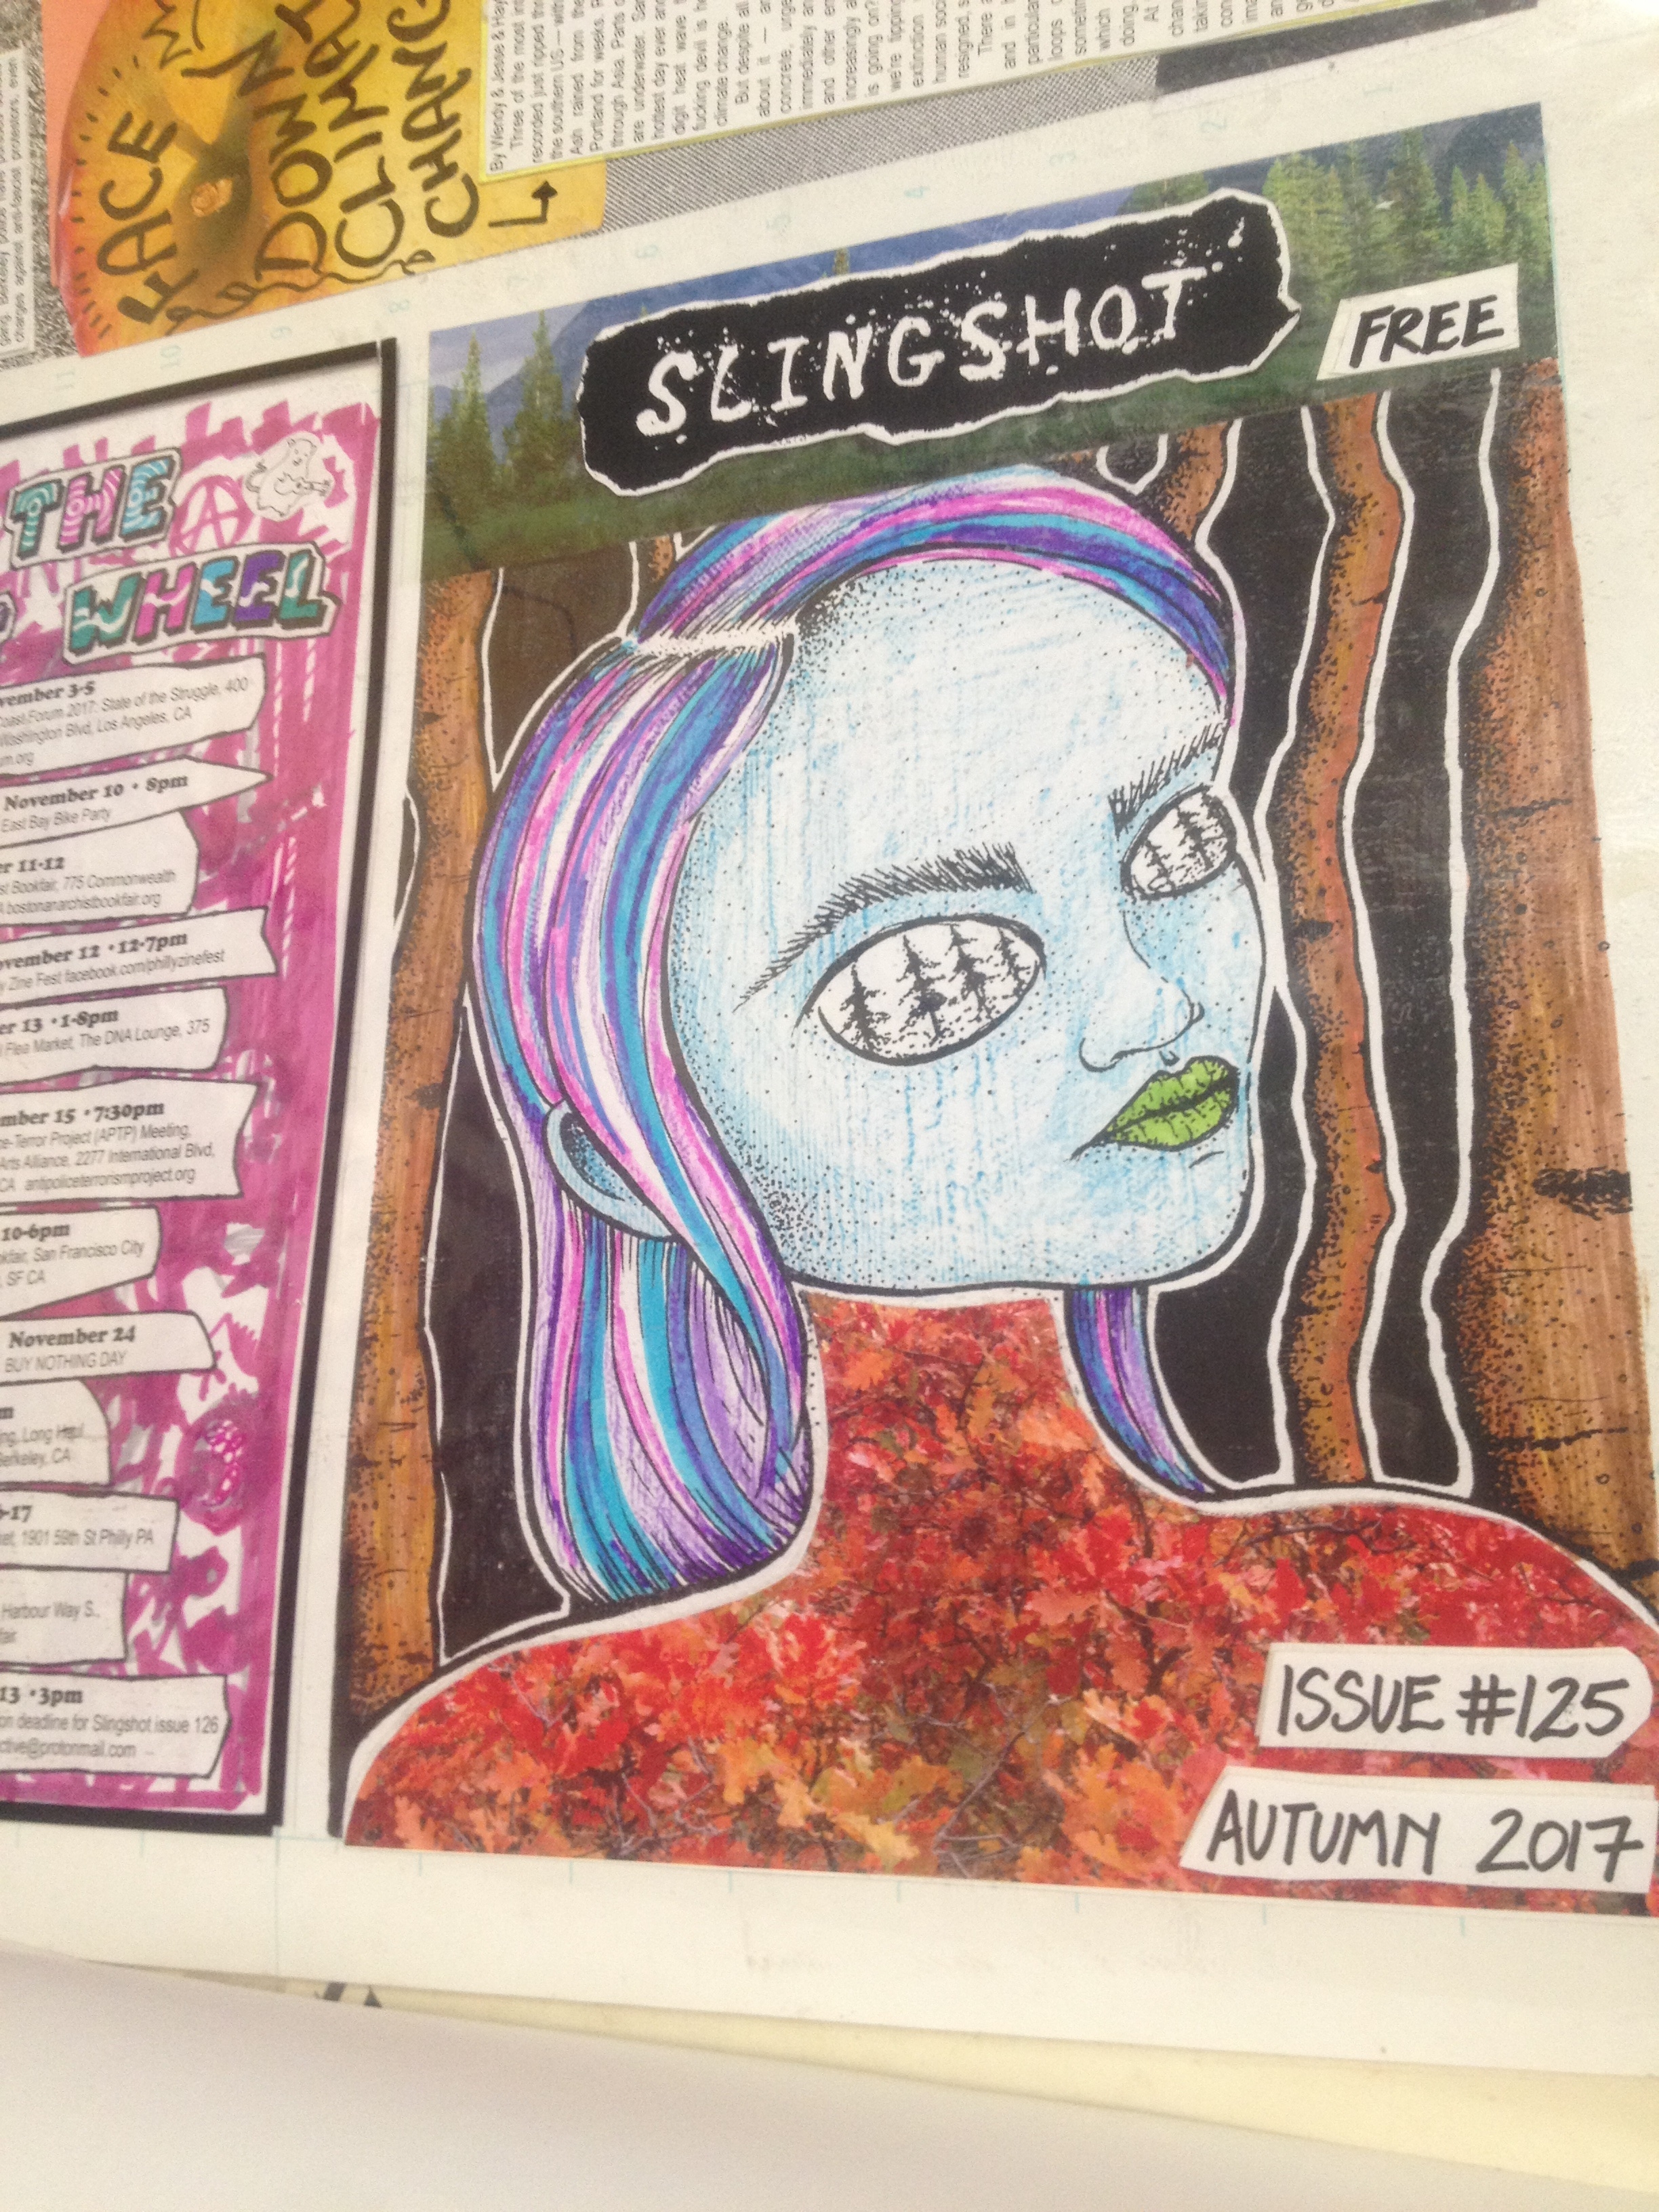 SLINGSHOT
FREE
ISSUE #125
AUTUMN 2017
FACE
DOWN
CLIMAT
CHANG
By Wendy & Jesse & Hay
Three of the most in
recorded just ripped th
the southern US — with
Ash rained from the
Portland for weeks.
through Asia. Parts
are underwater.
hottest day ever an
digit heat wave
fucking devil is he
climate change.
But despite all
about it — an
concrete, urge
immediately a
and other en
increasingly a
is going on?
we're tippin
extinction
human soci
resigned, s
There a
and in
particular
loops o
sometim
which
doing.
At
chan
taking
con
ima
and
gang. Berkeley police have
charges against anti-fascist protestors, even
THE
WHEEL
vember 3-5
Coast Forum 2017: State of the Struggle, 400
Washington Blvd, Los Angeles, CA
um.org
November 10 • 8pm
East Bay Bike Party
er 11-12
st Bookfair, 775 Commonwealth
A bostonanarchistbookfair.org
ovember 12 • 12-7pm
y Zine Fest facebook.com/phillyzinefest
er 13 • 1-8pm
l Flea Market, The DNA Lounge, 375
mber 15 • 7:30pm
ce-Terror Project (APTP) Meeting,
Arts Alliance, 2277 International Blvd,
CA antipoliceterrorismproject.org
10-6pm
kfair, San Francisco City
, SF CA
November 24
BUY NOTHING DAY
m
ng, Long Haul
Berkeley, CA
-17
ket, 1901 59th St Philly PA
Harbour Way S.,
fair
13 • 3pm
on deadline for Slingshot issue 126
ctive@protonmail.com